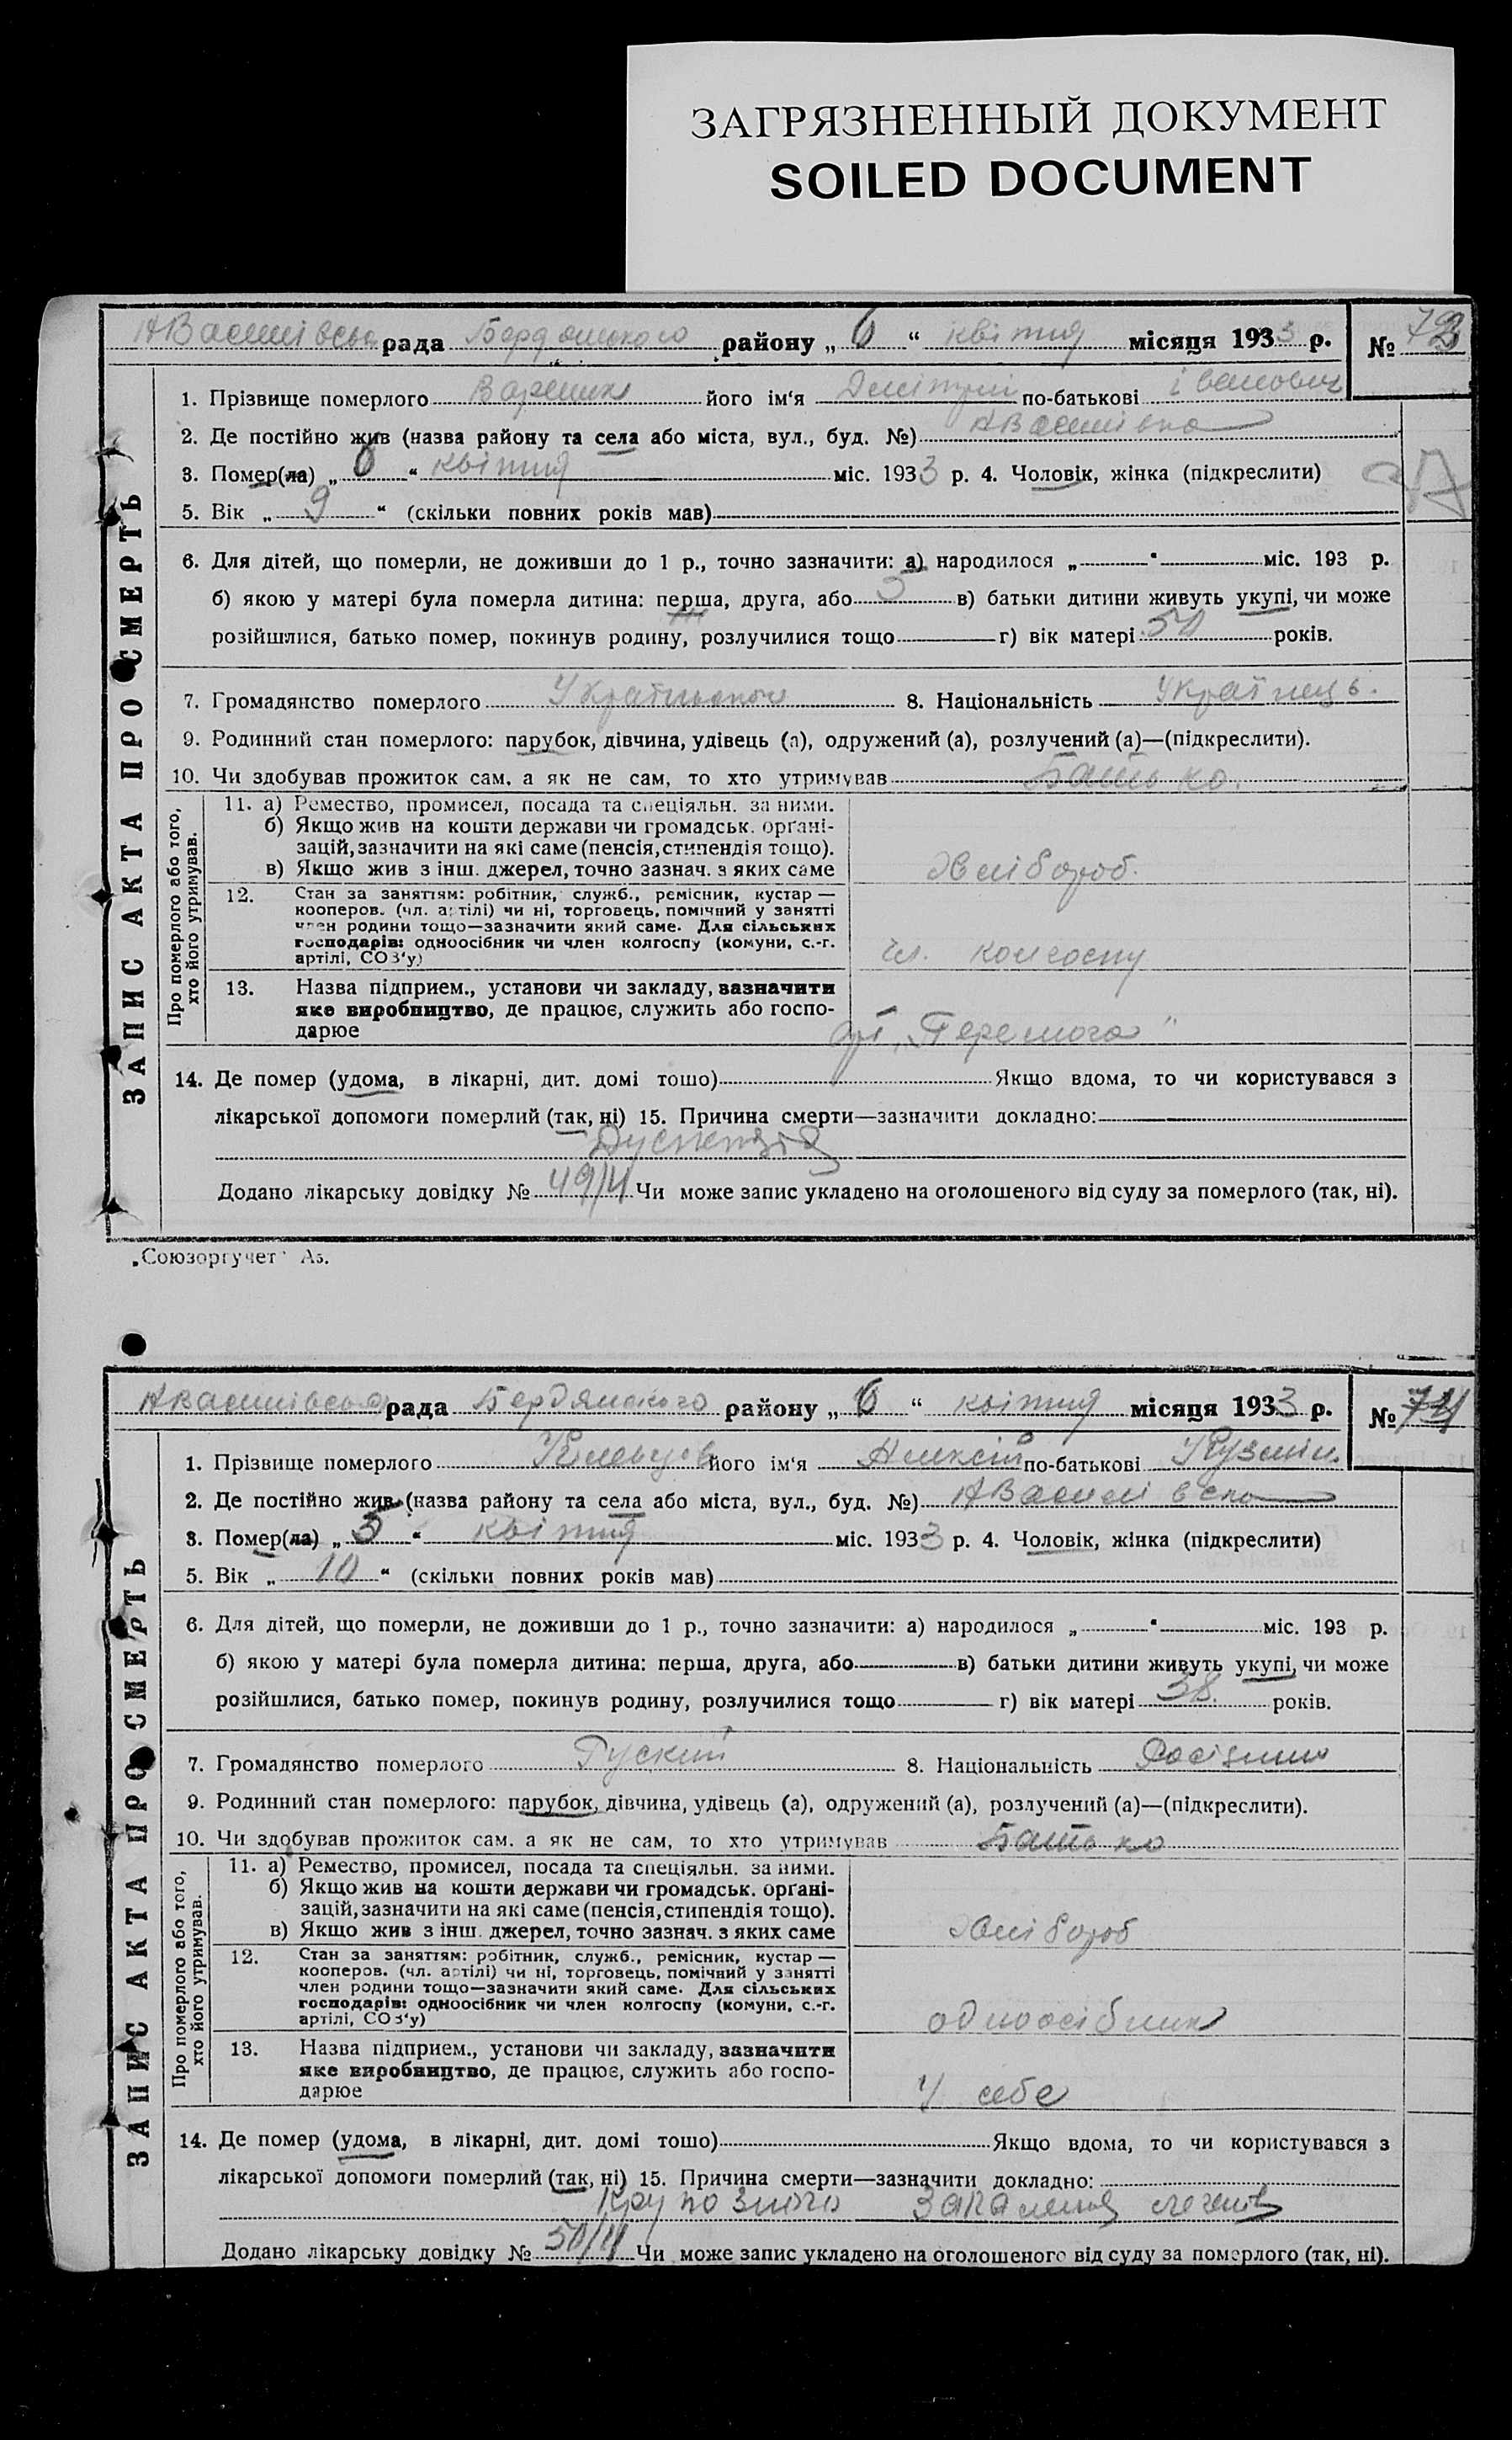 ЗАГРЯЗНЕННЫЙ ДОКУМЕНТ
SOILED DOCUMENT
рада районy „ 6 “ квітня місяця 1933 р. №
1. Прізвище померлого його ім‘я Дмітрій по-батькові Іванович
2. Де постійно жив (назва району та села або міста, вул., буд. №)
3. Помер(ла) „ 6 “ квітня міс. 1933 р. 4. Чоловік, жінка (підкреслити)
5. Вік „ 9 “ (скільки повних років мав)
6. Для дітей, що померли, не доживши до 1 р., точно зазначити: а) народилося „ “ міс. 193 р.
б) якою у матері була померла дитина: перша, друга, або 3 в) батьки дитини живуть укупі, чи може
розійшлися, батько помер, покинув родину, розлучилися тощо г) вік матері 50 років.
7. Громадянство померлого 8. Національність Українець.
9. Родинний стан померлого: парубок, дівчина, удівець (а), одружений (а), розлучений (а)—(підкреслити).
10. Чи здобував прожиток сам, а як не сам, то хто утримував Батько.
Про померлого або того, хто його утримував.
11. а) Ремество, промисел, посада та спеціяльн. за ними.
б) Якщо жив на кошти держави чи громадськ. органі-
зацій, зазначити на які саме (пенсія, стипендія тощо).
в) Якщо жив з інш. джерел, точно зазнач. з яких саме Хлібороб.
12. Стан за заняттям: робітник, служб., ремісник, кустар —
кооперов. (чл. артілі) чи ні, торговець, помічний у занятті
член родини тощо—зазначити який саме. Для сільських
господарів: одноосібник чи член колгоспу (комуни, с.-г.
артілі, СОЗ‘у) чл. колгоспу
13. Назва підприєм., установи чи закладу, зазначити
яке виробництво, де працює, служить або госпо-
дарює „Перемога“
14. Де помер (удома, в лікарні, дит. домі тошо) Якщо вдома, то чи користувався з
лікарської допомоги померлий (так, ні) 15. Причина смерти—зазначити докладно:
Додано лікарську довідку № 49/4 Чи може запис укладено на оголошеного від суду за померлого (так, ні).
ЗАПИС АКТА ПРО СМЕРТЬ
„Союзоргучет“ Аз.
рада Бердянского району „ 6 “ квітня місяця 1933 р. № 74
1. Прізвище померлого його ім‘я Алексій по-батькові Кузміч
2. Де постійно жив (назва району та села або міста, вул., буд. №)
3. Помер(ла) „ 5 “ квітня міс. 1933 р. 4. Чоловік, жінка (підкреслити)
5. Вік „ 10 “ (скільки повних років мав)
6. Для дітей, що померли, не доживши до 1 р., точно зазначити: а) народилося „ “ міс. 193 р.
б) якою у матері була померла дитина: перша, друга, або в) батьки дитини живуть укупі, чи може
розійшлися, батько помер, покинув родину, розлучилися тощо г) вік матері 38 років.
7. Громадянство померлого Руский 8. Національність
9. Родинний стан померлого: парубок, дівчина, удівець (а), одружений (а), розлучений (а)—(підкреслити).
10. Чи здобував прожиток сам, а як не сам, то хто утримував Батько
Про померлого або того, хто його утримував.
11. а) Ремество, промисел, посада та спеціяльн. за ними.
б) Якщо жив на кошти держави чи громадськ. органі-
зацій, зазначити на які саме (пенсія, стипендія тощо).
в) Якщо жив з інш. джерел, точно зазнач. з яких саме Хлібороб
12. Стан за заняттям: робітник, служб., ремісник, кустар —
кооперов. (чл. артілі) чи ні, торговець, помічний у занятті
член родини тощо—зазначити який саме. Для сільських
господарів: одноосібник чи член колгоспу (комуни, с.-г.
артілі, СОЗ‘у) одноосібник
13. Назва підприєм., установи чи закладу, зазначити
яке виробництво, де працює, служить або госпо-
дарює У себе
14. Де помер (удома, в лікарні, дит. домі тошо) Якщо вдома, то чи користувався з
лікарської допомоги померлий (так, ні) 15. Причина смерти—зазначити докладно:
Крупозного запаленія легенів
Додано лікарську довідку № 50/4 Чи може запис укладено на оголошеного від суду за померлого (так, ні).
ЗАПИС АКТА ПРО СМЕРТЬ